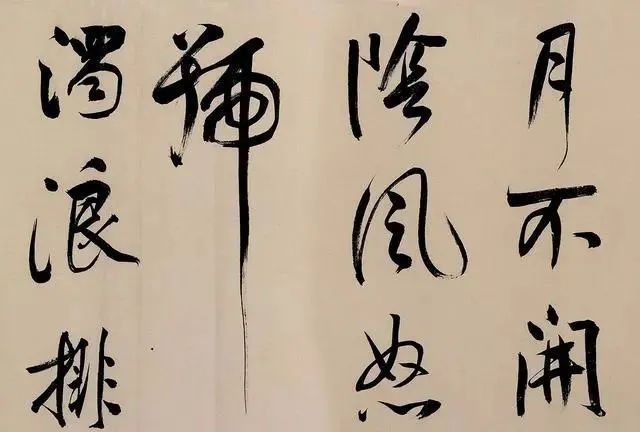 月不開
陰風怒
號
濁浪排